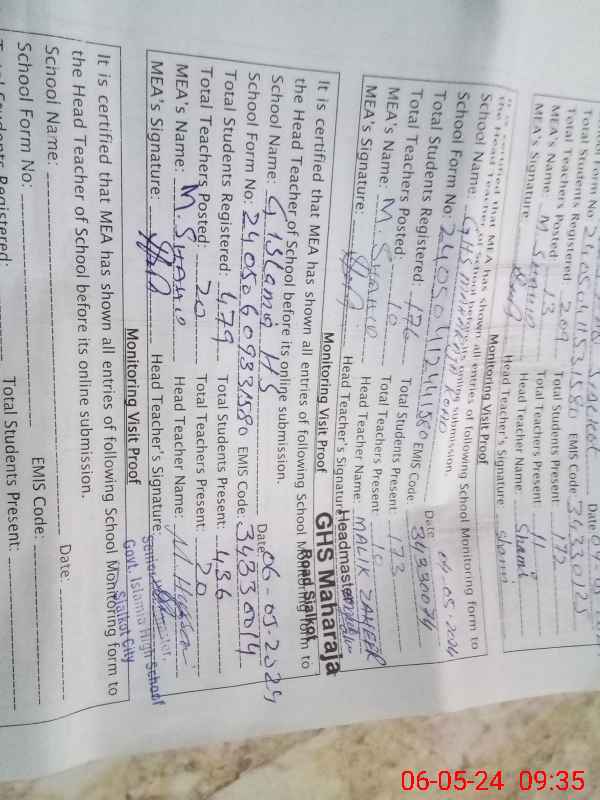 School Form No: 24050411531580 EMIS Code: 34330125
Total Students Registered: 209 Total Students Present: 172
Total Teachers Posted: 13 Total Teachers Present: 11
MEA's Name: Head Teacher Name: Shamil
MEA's Signature Head Teacher's Signature
Monitoring Visit Proof
It is certified that MEA has shown all entries of following School Monitoring form to
the Head Teacher of School before its online submission.
School Name: GHS Date
School Form No: 24050412441580 EMIS Code: 34330074
Total Students Registered: 176 Total Students Present: 173
Total Teachers Posted: 10 Total Teachers Present: 10
MEA's Name: M. Head Teacher Name: MALIK ZAHEER
MEA's Signature: Head Teacher's Signature
Headmaster
GHS Maharaja
Road Sialkot
Monitoring Visit Proof
It is certified that MEA has shown all entries of following School Monitoring form to
the Head Teacher of School before its online submission.
School Name: G Islamia HS Date 06-05-2024
School Form No: 24050609331580 EMIS Code: 34330014
Total Students Registered: 479 Total Students Present: 436
Total Teachers Posted: 20 Total Teachers Present: 20
MEA's Name: M. Head Teacher Name: M
MEA's Signature: Head Teacher's Signature:
Govt. Islamia High School
Sialkot City
Monitoring Visit Proof
It is certified that MEA has shown all entries of following School Monitoring form to
the Head Teacher of School before its online submission.
School Name: Date:
School Form No: EMIS Code:
Total Students Registered: Total Students Present:
06-05-24 09:35